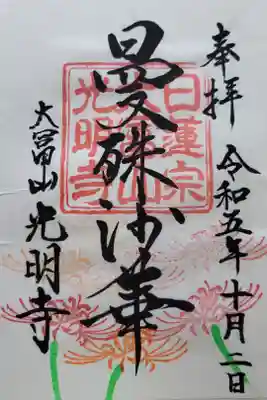 奉拝
令和五年十月二日
曼珠沙華
日蓮宗
光明寺
大富山
光明寺